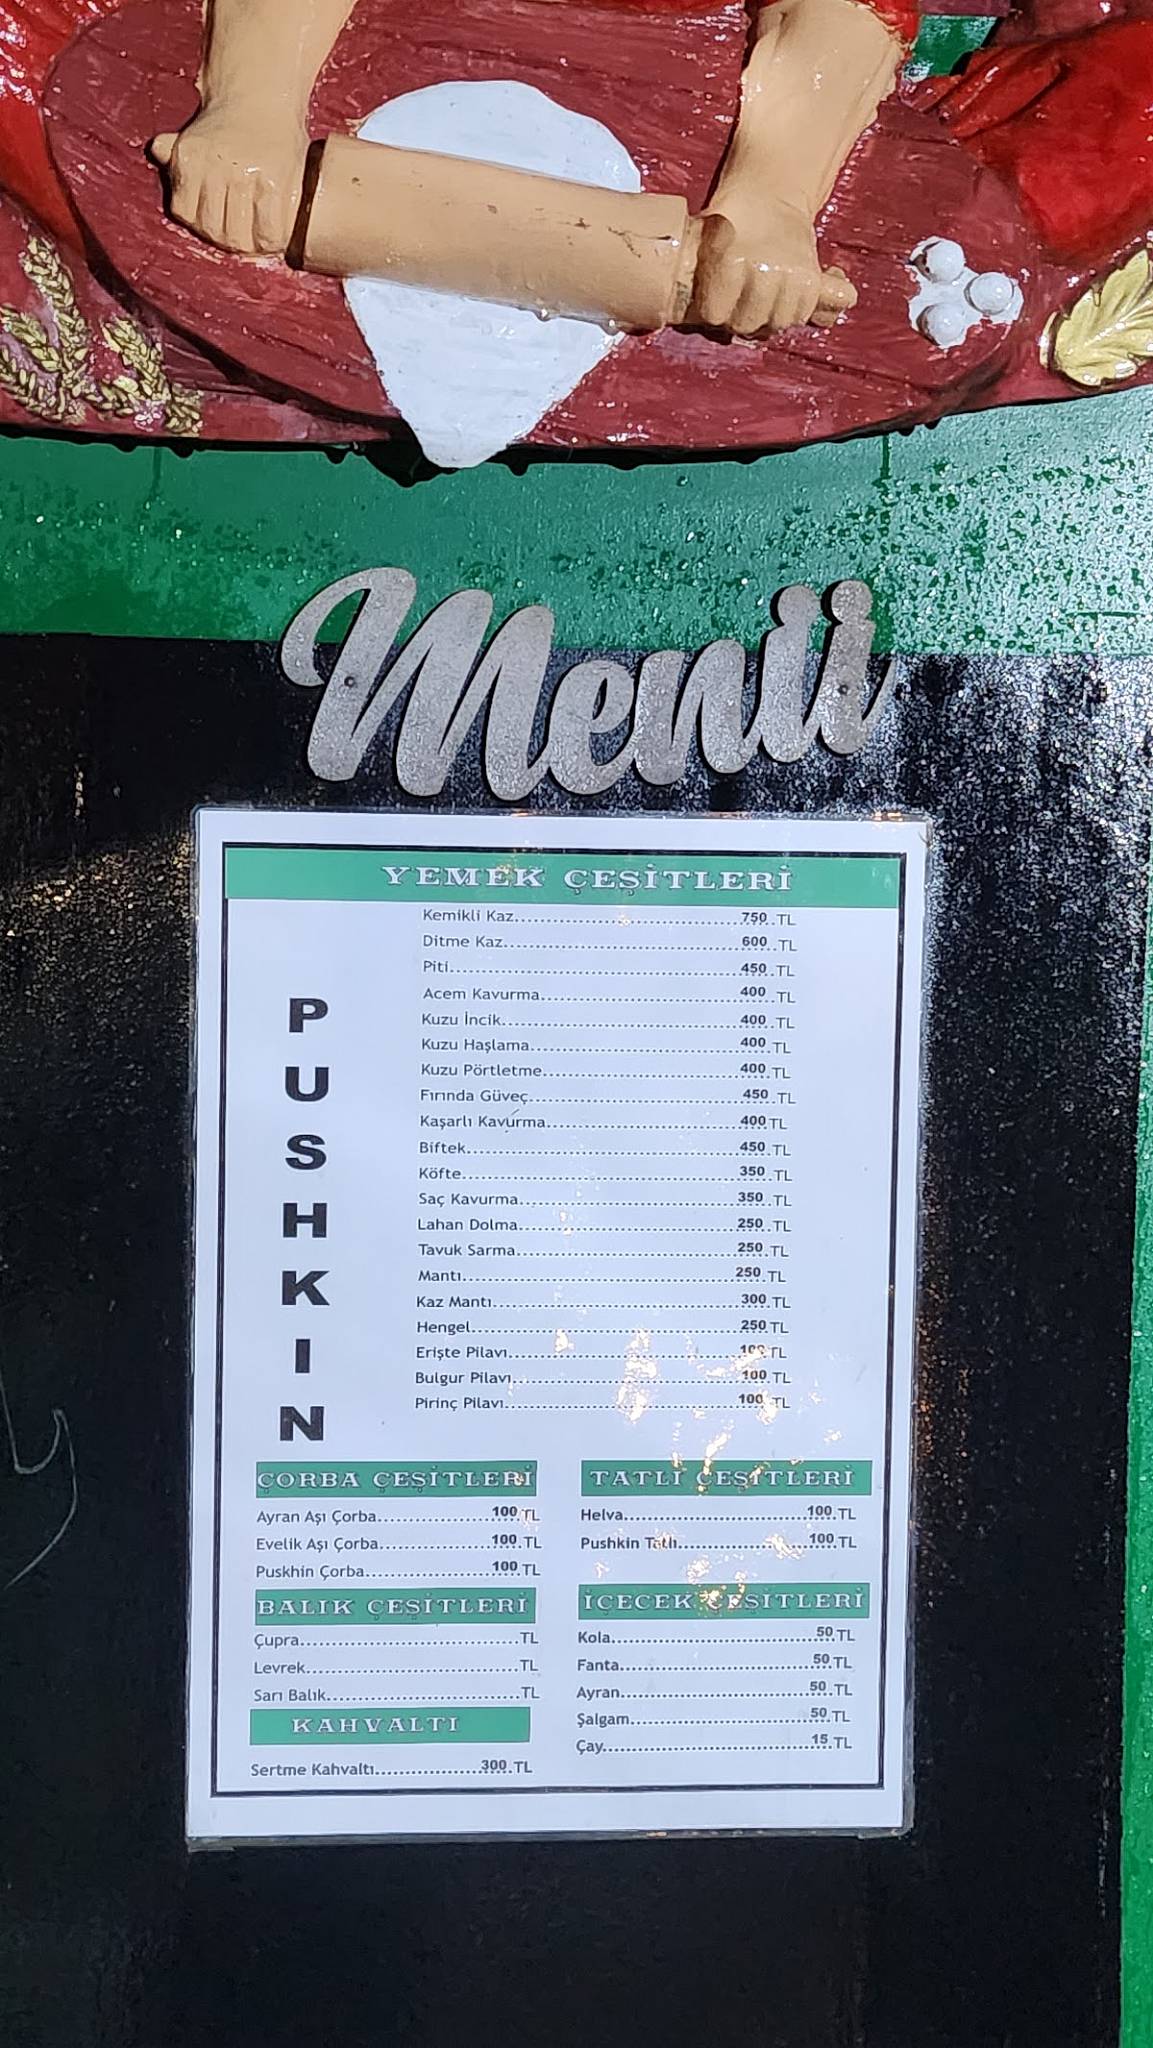 Menü
YEMEK ÇEŞİTLERİ
Kemikli Kaz 750 TL
Ditme Kaz 600 TL
Piti 450 TL
Acem Kavurma 400 TL
Kuzu İncik 400 TL
Kuzu Haşlama 400 TL
Kuzu Pörtletme 400 TL
Fırında Güveç 450 TL
Kaşarlı Kavurma 400 TL
Biftek 450 TL
Köfte 350 TL
Saç Kavurma 350 TL
Lahan Dolma 250 TL
Tavuk Sarma 250 TL
Mantı 250 TL
Kaz Mantı 300 TL
Hengel 250 TL
Erişte Pilavı 100 TL
Bulgur Pilavı 100 TL
Pirinç Pilavı 100 TL
PUSHKIN
ÇORBA ÇEŞİTLERİ
Ayran Aşı Çorba 100 TL
Evelik Aşı Çorba 100 TL
Puskhin Çorba 100 TL
BALIK ÇEŞİTLERİ
Çupra TL
Levrek TL
Sarı Balık TL
KAHVALTI
Sertme Kahvaltı 300 TL
TATLI ÇEŞİTLERİ
Helva 100 TL
Pushkin Tatlı 100 TL
İÇECEK ÇEŞİTLERİ
Kola 50 TL
Fanta 50 TL
Ayran 50 TL
Şalgam 50 TL
Çay 15 TL